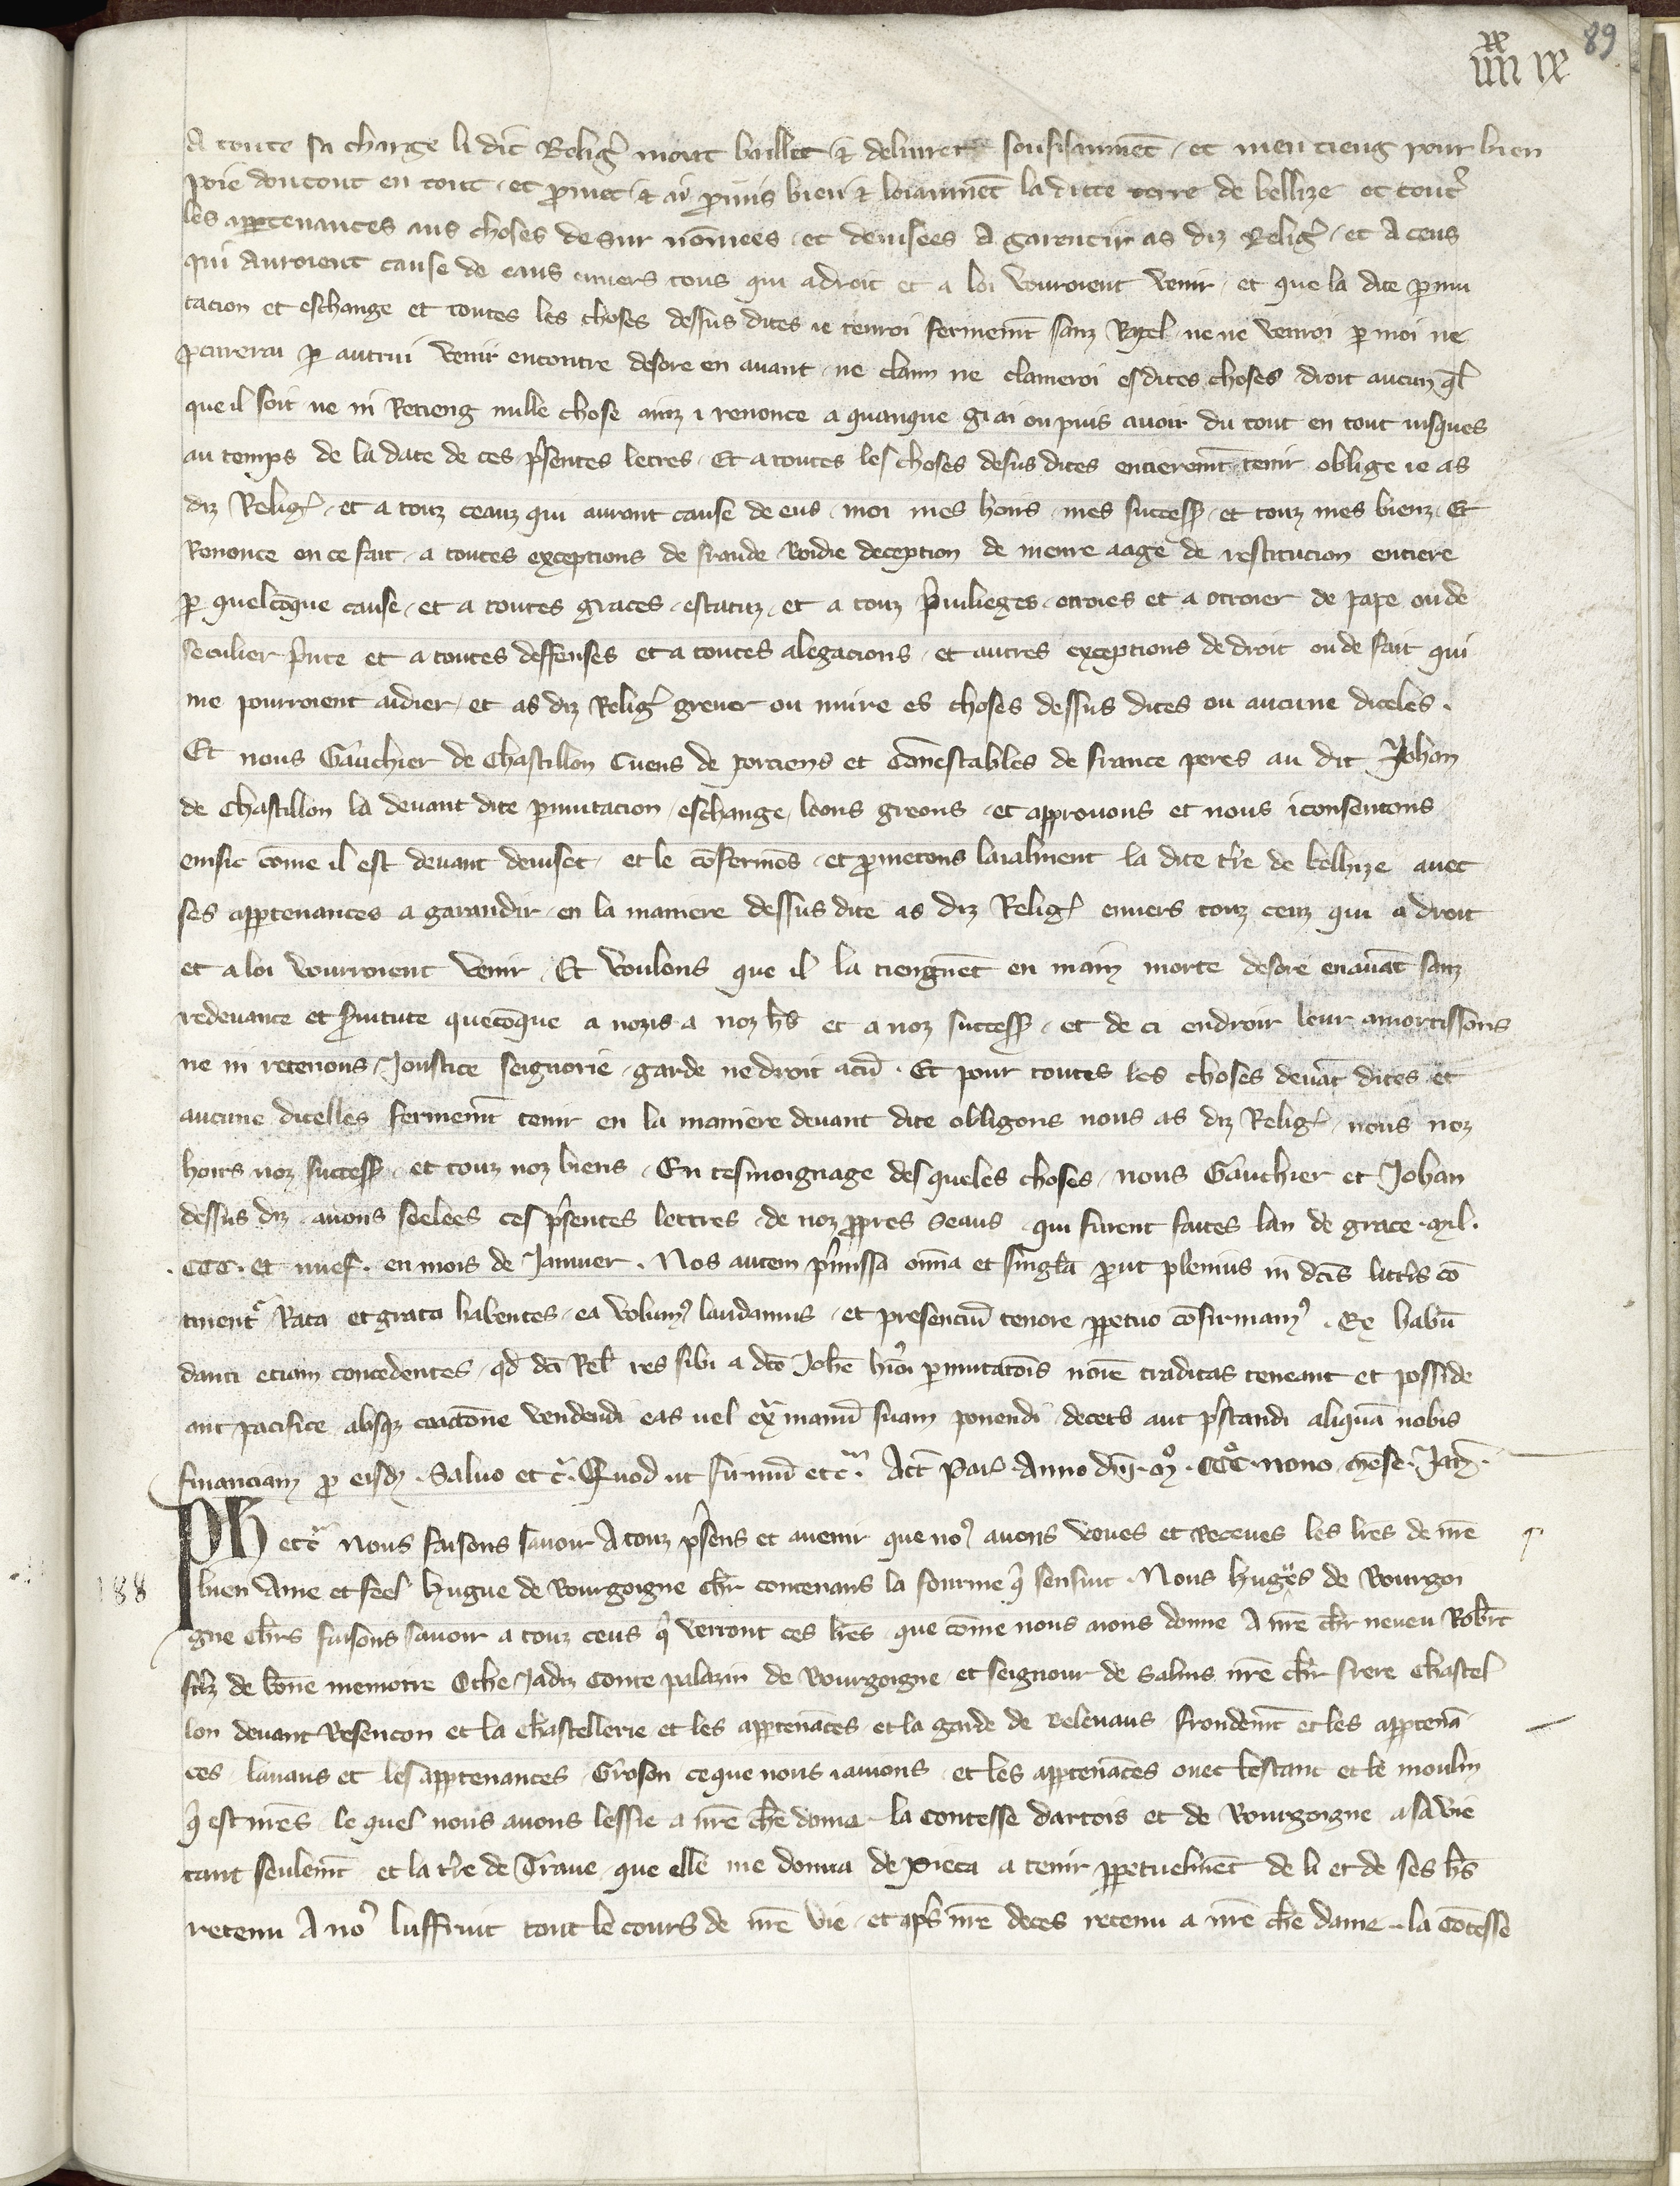 89
IIII XX IX
A toute sa charge li dit Relig' mont baillet et delivret soufisamment . et men tieng pour bien
poie dou tout en tout . et p̄met et ai p̄mis bien et loiaument la ditte terre de bellize et tout'
les app̱tenances aus choses de sur nōmees . et devisees A garentir as diz Relig' . et A ceus
qui Auroient cause de eaus envers tous qui a droit et a loi vouroient venir . et que la dite p̱mu
tacion et eschange et toutes les choses dessus dites ie tenroi fermem̄t sanz Rapel ne ne venroi p̱ moi ne
p̱curerai p̱ autrui venir encontre desore en avant . ne claim ne clameroi es dites choses droit aucun q̄l
que il soit ne ni Retieng nulle chose ainz i renonce a quanque gi ai ou puis avoir du tout en tout iusques
au temps de la date de ces p̄sentes letres . Et a toutes les choses desus dites entierem̄t tenir oblige ie as
diz Relig' . et a touz ceauz qui auront cause de eus . moi mes hoirs . mes success' . et touz mes bienz . Et
Renonce en ce fait . a toutes exceptions de fraude . boidie deception de menre aage de restitucion entiere
p̱ quelcōque cause . et a toutes graces . estatuz . et a touz p̄viliéges . otroies et a otroier de pape ou de
seculier p̄nce et a toutes deffenses et a toutes alegacions . et autres exceptions de droit ou de fait qui
me pourroient aidier . et as diz Relig' grever ou nuire es choses dessus dites ou aucune diceles .
Et nous Gauchier de Chastillon Cuens de porciens et Conestables de france peres au dit Johan
de Chastillon la devant dite p̱mutacion . eschange . loons greons . et approvons et nous i consentons
ensic cōme il est devant deviset . et le cōfermōs . et p̄metons laialment la dite t̄re de bellize avec
ses app̱tenances a garandir . en la maniere dessus dite as diz Relig' envers touz ceuz qui a droit
et a loi vourroient venir . Et voulons que il la tiengnēt en main morte desore en avāt sanz
redevance et s̱vitute quecōque a nozis a noz h̄s et a noz success' . et de ci endroir leur amortissons
ne ni retenons . Joustice seignorie . garde ne droit acū . Et pour toutes les choses devāt dites et
aucune dicelles fermem̄t tenir en la maniere devant dite obligons nous as diz Relig' . nous noz
hoirs noz success' . et touz noz biens . En tesmoignage des queles choses . nous Gauchier et Johan
dessus diz . avons seelees ces p̄sentes lettres . de noz p̱pres seaus . qui furent faites lan de grace . mil .
. CCC . et nuef . en mois de Janvier . Nos autem p̄missa om̄ia et sinḡla p̱ut plenius in dc̄is litt̄is cō
tinent' Rata et grata habentes . ea volum' laudamus . et presenciū tenore p̱petuo cōfirmam' . Ex habū
danti etiam concedentes . qd dc̄i Rel' res sibi a dc̄o Joh̄e h̄mōi p̱mutatōis noīe traditas teneant et posside
ant pacifice absq' coactōne vendendi eas vel ext̄ manū suam ponendi decet̄o aut p̄standi aliquā nobis
financiam p̱ eisd' . Salvo et c̄ . Quod ut firmū et c̄ . Act̄ Par' . Anno dn̄i . mº . CCCº . nono mēse . Jan̄ .
Ph et c̄ Nous faisons savoir A touz p̄sens et avenir que no' avons veues et Receues les l̄res de n̄re
188
bien Ame et feel Hugue de Bourgoigne ch̄lr contenans la fourme q' sensuit . Nous Hugues de Bourgoi
gne ch̄lrs faisons savoir a touz ceus q' verront ces l̄res . que cōme nous aions donne A n̄re ch̄r neveu Rob̄rt
filz de bōne memoire Othe . Jadiz Conte palazin de Bourgoigne . et seignour de Salins n̄re ch̄r frere Chastel
lon devant Besencon et la Chastellerie et les app̱tenāces . et la garde de Relevaus . frondem̄t et les app̱tenā
ces . lavans et les app̱tenances . Groson ce que nous i avions . et les app̱tenāces ovec lestanc et le moulin
q' est n̄res le quel nous avons lessie a n̄re ch̄e dame . la Contesse dartois et de Bourgoigne a sa vie
tant seulem̄t et la t̄re de Trave . que elle me donna de pieca a tenir p̱petuelm̄et de li et de ses h̄s
retenu A no' lusffruit tout le cours de n̄re vie . et ap̄s n̄re deces retenu a n̄re ch̄e dame . la Cōtesse